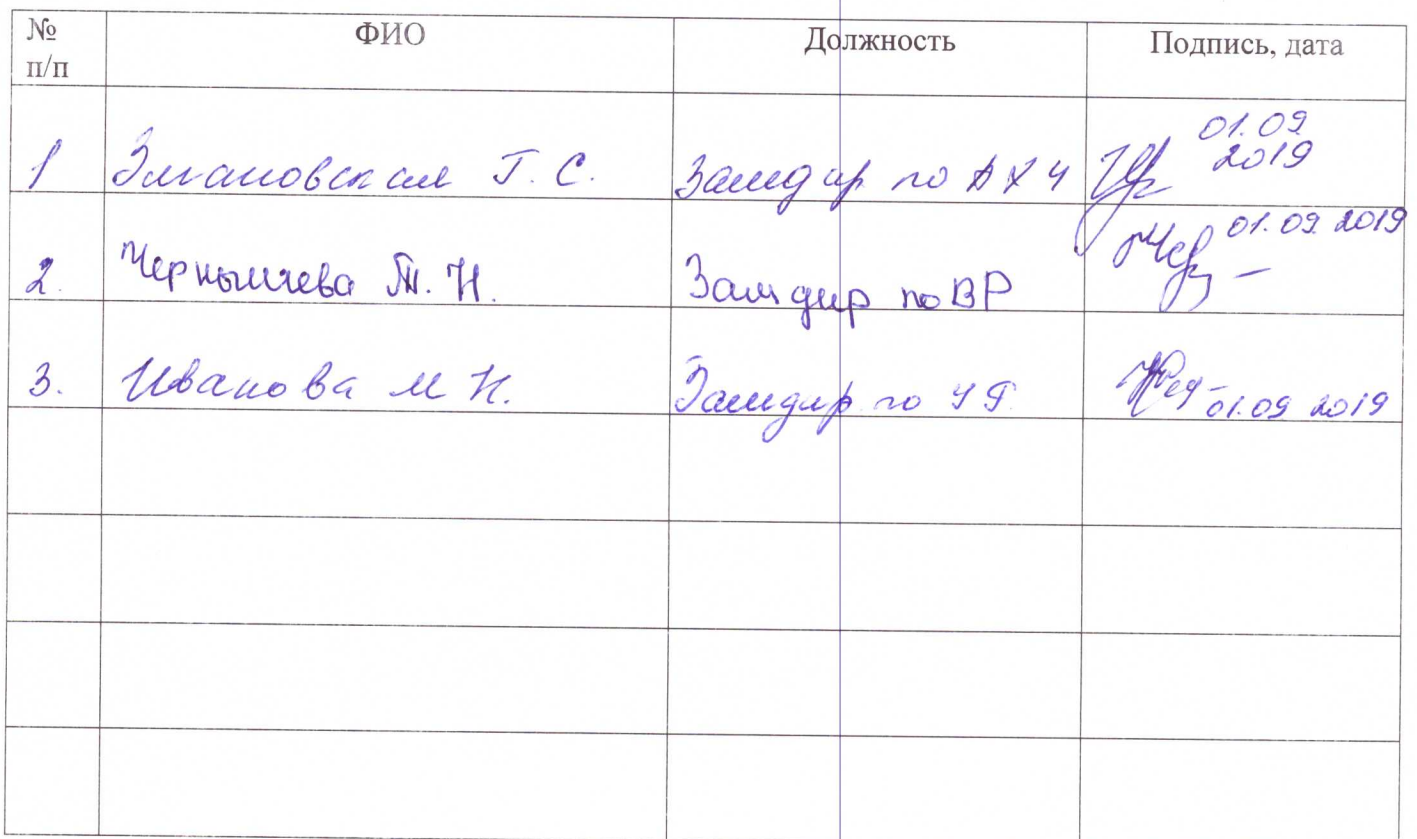 № п/п ФИО Должность Подпись, дата
1 Г. С. Замдир по АХЧ 01.09 2019
2. Чернышева Т. Н. Замдир по ВР 01.09. 2019
3. Иванова М Н. Замдир по 01.09 2019